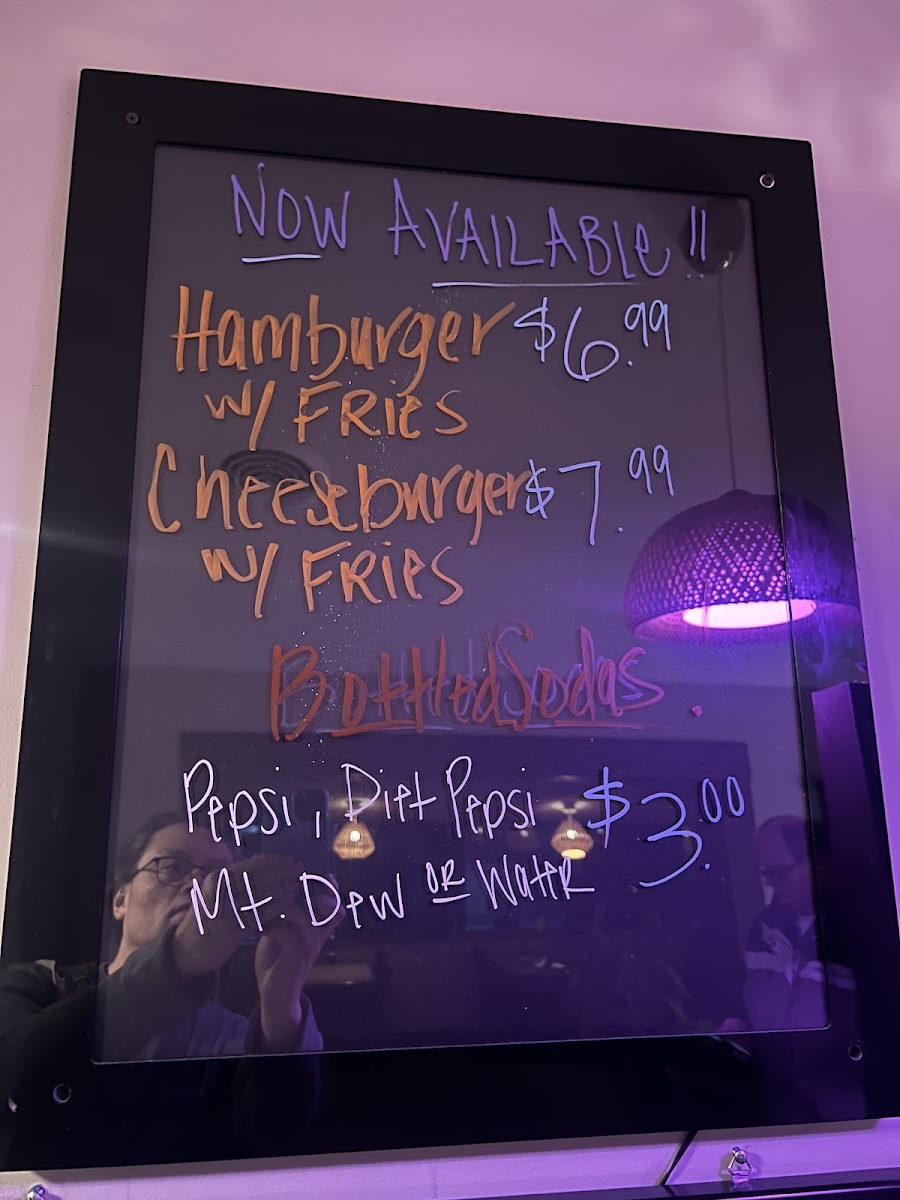 NOW AVAILABLE!!
Hamburger $6.99
w/ FRies
Cheeseburger $7.99
w/ FRies
Bottled Sodas.
Pepsi, Diet Pepsi $3.00
Mt. Dew OR WateR